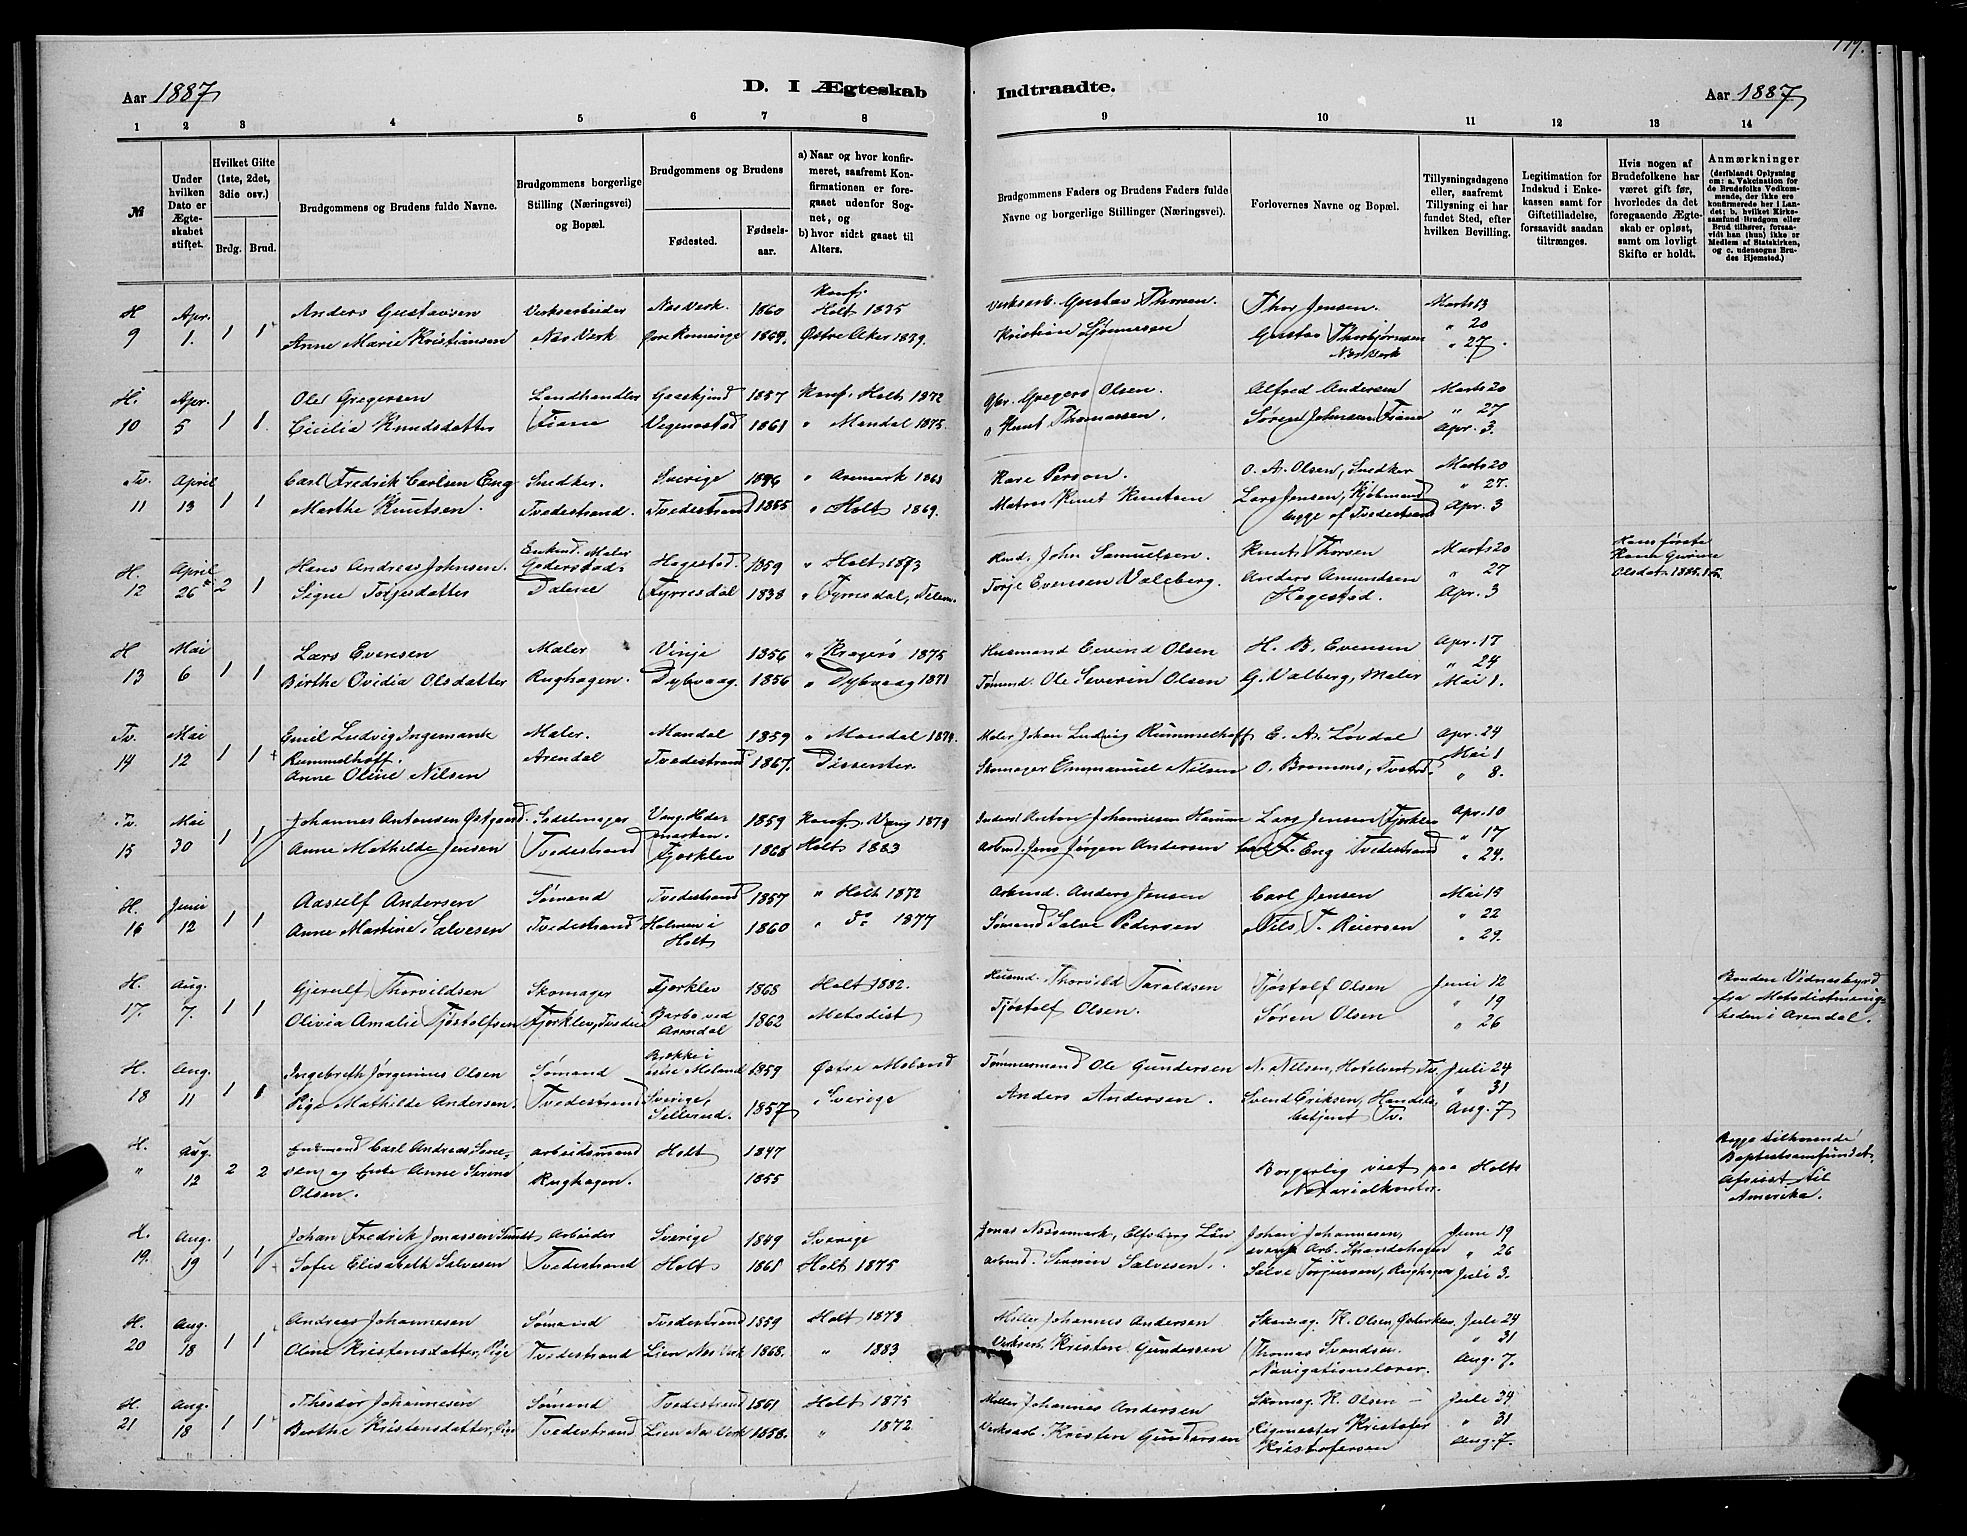 179.
Aar 1887
D. I Ægteskab
Indtraadte.
Aar 1887
1 2 3 4 5 6 7 8
9 10 11 12 13 14
№
Under hvilken Dato er Ægteskabet stiftet.
Hvilket Gifte (1ste, 2det, 3die osv.)
Brdg. Brud.
Brudgommens og Brudens fulde Navne.
Brudgommens borgerlige Stilling (Næringsvei) og Bopæl.
Brudgommens og Brudens
Fødested.
Fødselsaar.
a) Naar og hvor konfirmeret, saafremt Konfirmationen er foregaaet udenfor Sognet, og
b) hvor sidst gaaet til Alters.
Brudgommens Faders og Brudens Faders fulde Navne og borgerlige Stillinger (Næringsvei).
Forlovernes Navne og Bopæl.
Tillysningsdagene eller, saafremt Tillysning ei har fundet Sted, efter hvilken Bevilling.
Legitimation for Indskud i Enkekassen samt for Giftetilladelse, forsaavidt saadan tiltrænges.
Hvis nogen af Brudefolkene har været gift før, hvorledes da det foregaaende Ægteskab er opløst, samt om lovligt Skifte er holdt.
Anmærkninger (derfiblandt Oplysning om: a. Vakcination for de Brudefolks Vedkommende, der ikke ere konfirmerede her i Landet; b. hvilket Kirkesamfund Brudgom eller Brud tilhører, forsaavidt han (hun) ikke er Medlem af Statskirken, og c. udensogns Brudes Hjemsted.)
H. Apr. Anders Gustavsen Verksarbeider Næs Verk. 1860 Konf. Holt 1875 Verksarb. Gustav Thorsen. Thor Jensen. Marts 13
9 1. 1 1 Anne Marie Kristiansen Næs Verk 1864. Østre Aker 1879. Kristian Gustav Thorbjørnsen " 20
Næs Verk " 27.
H. Apr. Ole Gregersen Landhandler 1857 Konf. Holt 1872 Gbr. Gregers Olsen. Alfred Andersen Marts 20
10 5 1 1. Cicilia Knudsdatter Fiane 1861 " Mandal 1875. " Knut Thomassen. Søren Johnsen Fiane " 27
Apr. 3.
Tv. April Carl Fredrik Carlsen Eng Snedker. Sverige 1846 " Aremark 1863 Person. O. A. Olsen, Snedker Marts 20
11 13 1 1 Marthe Knutsen. Tvedestrand. Tvedestrand 1855 " Holt 1869. Matros Knut Knutsen Lars Jensen, Kjøbmand " 27.
begge af Tvedestrand Apr. 3
H. April Hans Andreas Johnsen. Enkmd. Maler Hagestad. 1859 " Holt 1873 Husmd. John Samuelsen. Knut Thorsen Marts 20 Hans første Kone Gurine
12 26 2 1 Signe Torjesdatter Dalene Fyrresdal 1838 " Fyrresdal, Telem. Torje Evensen Valeberg. Anders Amundsen " 27 Olsdat.
Hagestad. Apr. 3
H Mai Lars Evensen Maler Vinje 1856 " Kragerø 1875 Husmand Eivind Olsen H. B. Evensen Apr. 17
13 6 1 1 Birthe Ovidia Olsdatter Rughagen. Dybvaag. 1856 " Dybvaag 1871 Tømmd. Ole Severin Olsen G. Valberg, Maler " 24
Mai 1.
Tv. Mai Emil Ludvig Ingemann Maler. Mandal 1859 " Mandal 1874. Maler Johan Ludvig Rummelhoff E. A. Løvdal Apr. 24
14 12 1 1 Rummelhoff. Arendal Tvedestrand 1867. Dissenter. Skomager Emmanuel Nilsen O. Tvestrd. Mai 1
Anne Oline Nilsen " 8.
Tv. Mai Johannes Antonsen Østgaard. Sadelmager Vang, Hedemarken. 1859 Konf. Vang 1874 Anton Johannesen Lars Jensen Fjærklev Apr. 10
15 30 1 1 Anne Mathilde Jensen Tvedestrand Fjærklev 1868 Holt 1883 Arbmd. Jens Jørgen Andersen Carl F. Eng Tvedestrand " 17
" 24.
H. Juni Aasulf Andersen Sømand Tvedestrand 1857 " Holt 1872 Arbmd. Anders Jensen Carl Jensen Mai 15
16 12 1 1 Anne Martine Salvesen Tvedestrand Holmen i Holt 1860 " do 1877 Sømand Salve Pedersen Nils T. Reiersen " 22
" 29.
H. Aug. Gjerulf Thorvildsen Skomager Fjærklev 1868 Holt 1882. Husmd. Thorvild Taraldsen Tjøstolf Olsen Juni 12 Bruden Vidnesbyrd fra Metodistmenigheden i Arendal.
17. 7. 1 1 Olivia Amalie Tjøstolfsen Fjærklev, Tvedestd Barbo ved Arendal 1862 Metodist Tjøstolf Olsen. Søren Olsen " 19
" 26
H. Aug. Ingebreth Jørginius Olsen Sømand Brekke i østre Moland 1859 Østre Moland Tømmermand Ole Gundersen N. Nilsen, Hotelvert Tv. Juli 24
18 11 1 1 Pige Mathilde Andersen. Tvedestrand Sverige, 1857 " Sverige Anders Andersen. Svend Eriksen, Handelsbetjent Tv. " 31
Aug. 7
H. Aug. Enkemand Carl Andreas arbeidsmand Holt 1847 Borgerlig viet paa Holts Notarialkontor. Begge tilhørende Baptistsamfundet. Afreist til Amerika.
" 12 2 2 og Enke Anne Serine Olsen. Rughagen. 1855
H. Aug. Johan Fredrik Jonassen Sundt Arbeider Sverige 1849 Sverige Jonas Elfsborg Län Johan Johannesen, June 19
19. 19 1 1 Sofie Elisabeth Salvesen Tvedestrand Holt 1861 Holt 1875 Arbmd. Severin Salvesen. Arb. " 26
Salve Torjussen, Rughagen Juli 3.
H. Aug. Andreas Johannesen Sømand Tvedestrand 1859 Holt 1873 Møller Johannes Andersen Skomag. K. Olsen, Juli 24
20 18 1 1 Oline Kristensdatter, Pige Tvedestrand Lien Næs Verk 1868. " 1883 Verksarb. Kristen Gundersen Thomas Svendsen. Navigationslærer. " 31
Aug. 7.
H. Aug. Theodor Johannesen Sømand Tvedestrand 1861 Holt 1875 Møller Johannes Andersen Skomag. K. Olsen — Juli 24
21 18 1 1 Berthe Kristensdatter, Pige Tvedestrand Lien Næs Verk 1858. " 1872. Verksarb. Kristen Gundersen Rigmester Kristofer Kristofersen " 31
Aug. 7.